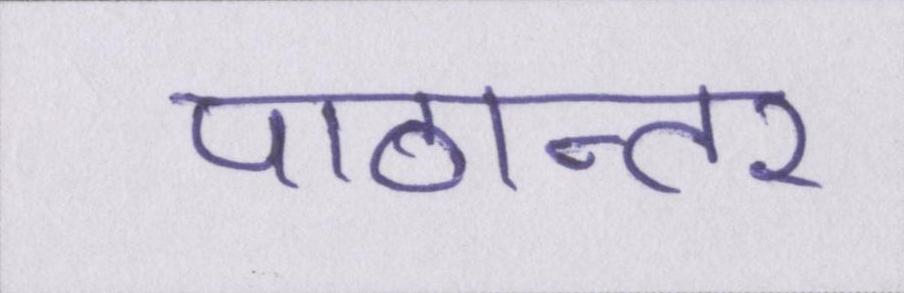 पाठान्तर